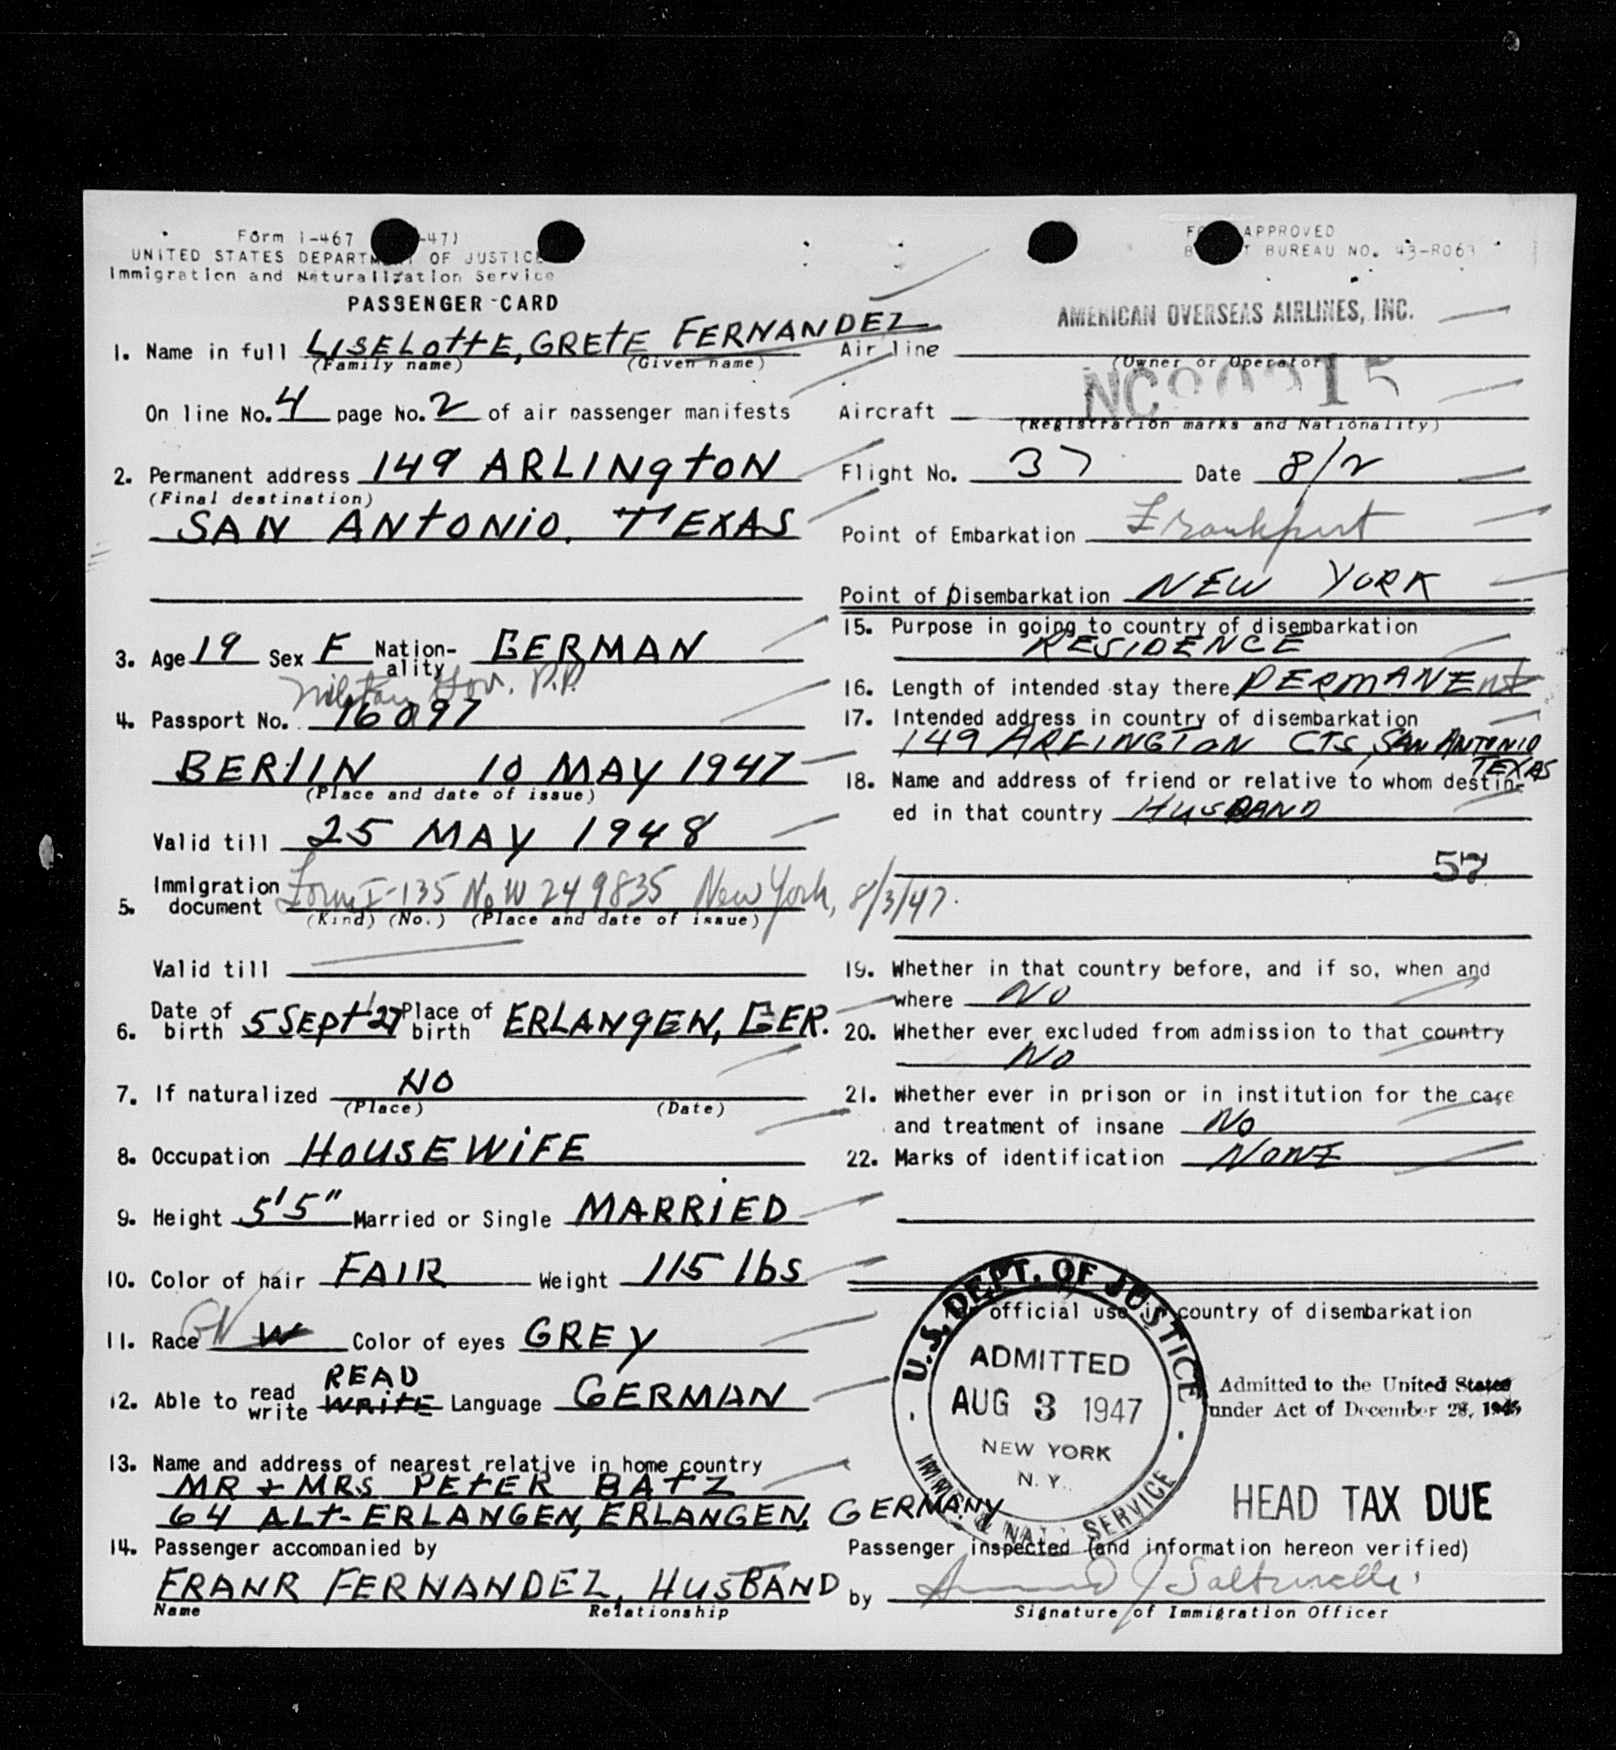 Form I-467 -47)
UNITED STATES DEPARTMENT OF JUSTICE
Immigration and Naturalization Service
PASSENGER CARD
1. Name in full LISELOttE, GREtE FERNANDEZ
(Family name) (Given name)
On line No. 4 page No. 2 of air passenger manifests
2. Permanent address 149 ARLINgtON
(Final destination)
SAN ANtONiO, TEXAS
3. Age 19 Sex F Nation-ality GERMAN
Military Gov. P.P.
4. Passport No. 16097
BERlIN 10 MAY 1947
(Place and date of issue)
Valid till 25 MAY 1948
5. Immigration document Form I-135 No W 249835 New York, 8/3/47.
(Kind) (No.) (Place and date of issue)
Valid till
6. Date of birth 5 SEpt '27 Place of birth ERLANgEN, GER.
7. If naturalized NO
(Place) (Date)
8. Occupation HOUSEWiFE
9. Height 5'5" Married or Single MARRIED
10. Color of hair FAIR Weight 115 lbs
11. Race W Color of eyes GREY
12. Able to read write READ WRitE Language GERMAN
13. Name and address of nearest relative in home country
MR & MRS PEtER BAtZ
64 ALt-ERLANGEN, ERLANGEN, GERMANY
14. Passenger accompanied by
FRANR FERNANDEZ, HUSBAND
Name Relationship
FO APPROVED
B T BUREAU NO. 43-R063
AMERICAN OVERSEAS AIRLINES, INC.
Air line
(Owner or Operator)
Aircraft NC90915
(Registration marks and Nationality)
Flight No. 37 Date 8/2
Point of Embarkation Frankfurt
Point of Disembarkation NEW YORK
15. Purpose in going to country of disembarkation
RESIDENCE
16. Length of intended stay there PERMANENt
17. Intended address in country of disembarkation
149 ARLINGTON CTS, SAN ANTONIO
TEXAS
18. Name and address of friend or relative to whom destin-
ed in that country HUSBAND
57
19. Whether in that country before, and if so, when and
where NO
20. Whether ever excluded from admission to that country
NO
21. Whether ever in prison or in institution for the care
and treatment of insane NO
22. Marks of identification NONE
official use in country of disembarkation
U.S. DEPT. OF JUSTICE
ADMITTED
AUG 3 1947
NEW YORK
N.Y.
IMMIG. & NAT. SERVICE
Admitted to the United States
under Act of December 28, 1945
HEAD TAX DUE
Passenger inspected (and information hereon verified)
by
Signature of Immigration Officer